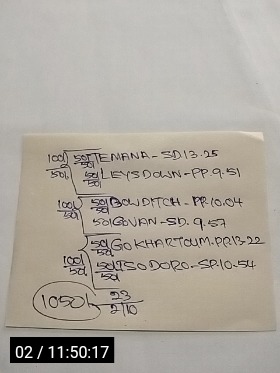 100/ 50/ TEMANA-SD13.25
50/ 50/ LEYSDOWN-PP.9.51
100/ 50/ BOWDITCH-PP.10.04
50/ 50/ GOVAN-SD.9.57
50/ GO KHARTOUM.PP.13-22
100/ 50/ ISODORO-SP.10-54
50/ 50/
1050/ 23
2/10
02 / 11:50:17